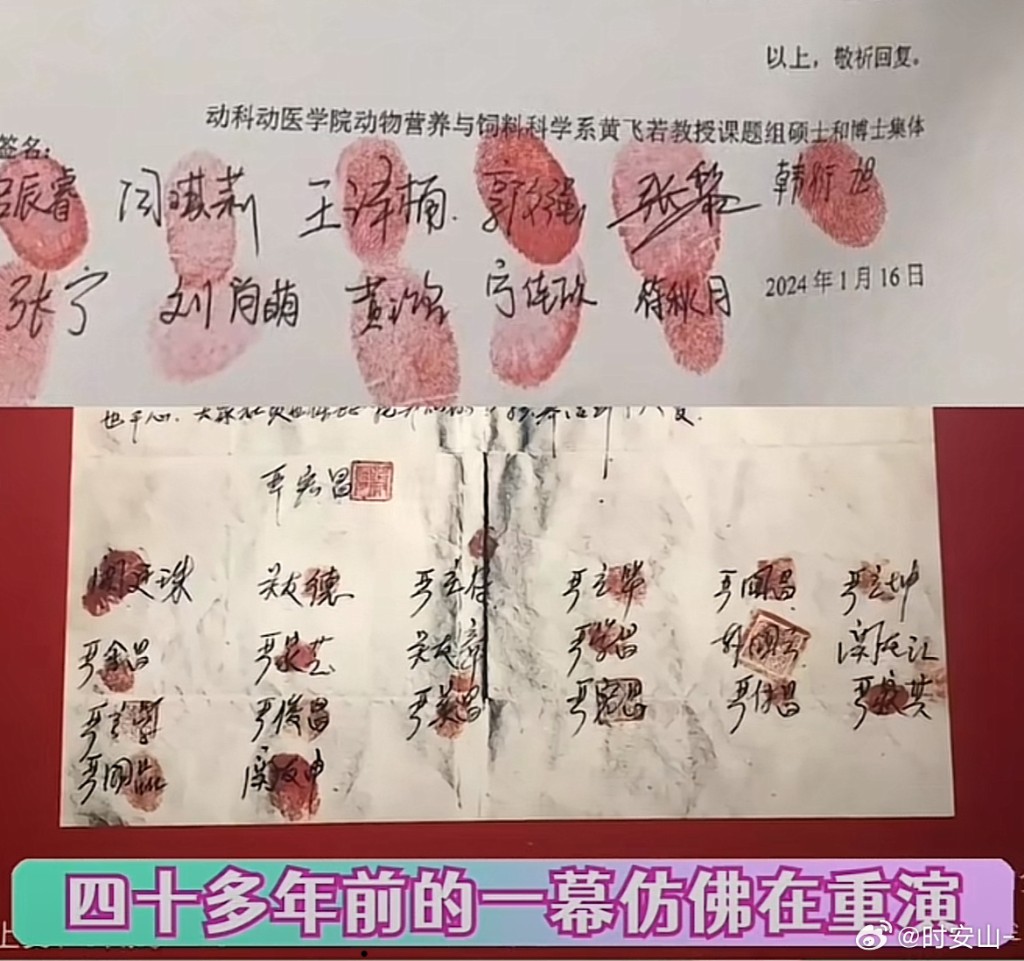 以上，敬祈回复。
动科动医学院动物营养与饲料科学系黄飞若教授课题组硕士和博士集体
签名：
吕辰睿 闫琪莉 王泽楠 郭强 张黎 韩衍旭
张宁 刘尚萌 黄铭 宁佳改 符秋月 2024年1月16日
严宏昌
关廷珠 关友德 严立符 严立华 严国昌 严立坤
严金昌 严家芝 关友章 严学昌 韩国云 关友江
严立学 严俊昌 严美昌 严宏昌 严付昌 严家其
严国品 关友申
四十多年前的一幕仿佛在重演
@时安山-